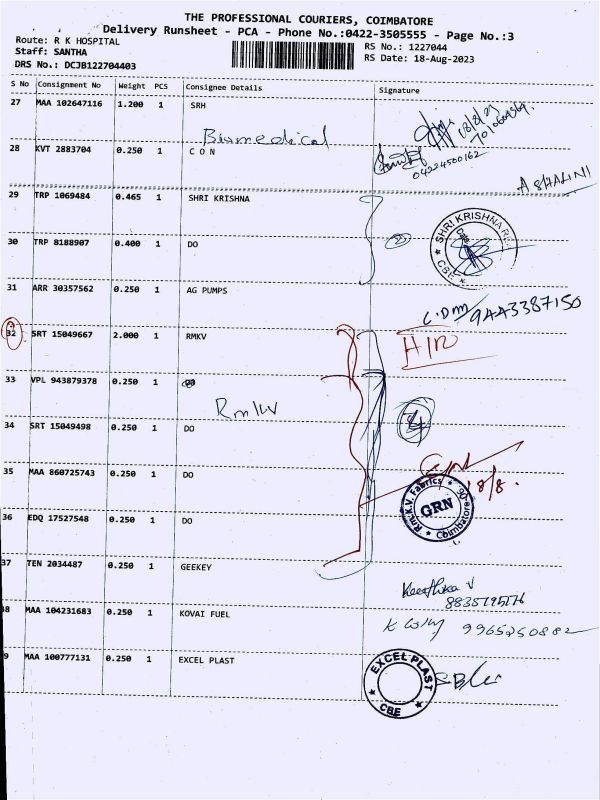 THE PROFESSIONAL COURIERS, COIMBATORE
Delivery Runsheet - PCA - Phone No.:0422-3505555 - Page No.:3
Route: R K HOSPITAL
Staff: SANTHA
DRS No.: DCJB122704403
RS No.: 1227044
RS Date: 18-Aug-2023
S No Consignment No Weight PCS Consignee Details Signature
27 MAA 102647116 1.200 1 SRH
Biomedical
28 KVT 2883704 0.250 1 C O N
04224500162
ASHALINI
29 TRP 1069484 0.465 1 SHRI KRISHNA
SHRI KRISHNA
CBE
30 TRP 8188907 0.400 1 DO
2
31 ARR 30357562 0.250 1 AG PUMPS
9443387150
32 SRT 15049667 2.000 1 RMKV
33 VPL 943879378 0.250 1
RmKV
4
34 SRT 15049498 0.250 1 DO
35 MAA 860725743 0.250 1 DO
18/8.
Rm.K.V. Fabrics
GRN
Coimbatore
36 EDQ 17527548 0.250 1 DO
37 TEN 2034487 0.250 1 GEEKEY
Keerthika V
38 MAA 104231683 0.250 1 KOVAI FUEL
9965250882
39 MAA 100777131 0.250 1 EXCEL PLAST
EXCEL PLAST
CBE